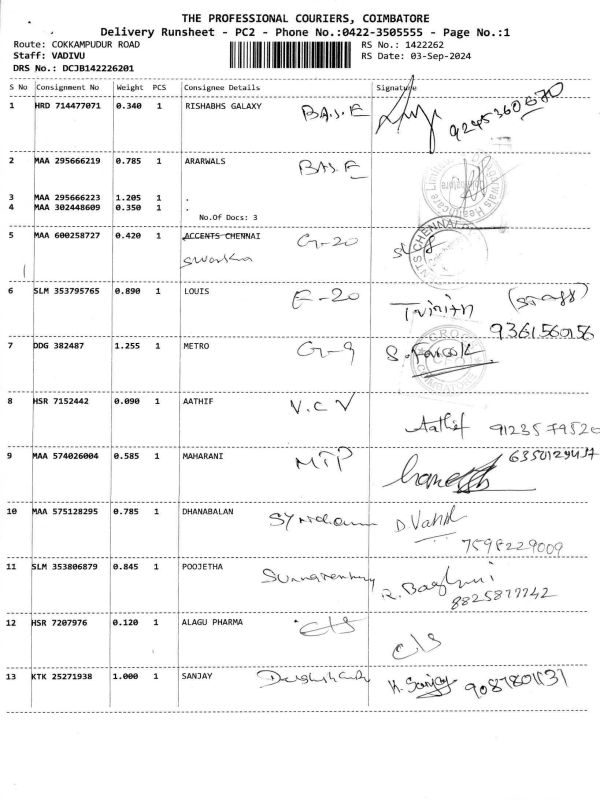 THE PROFESSIONAL COURIERS, COIMBATORE
Delivery Runsheet - PC2 - Phone No.:0422-3505555 - Page No.:1
Route: COKKAMPUDUR ROAD RS No.: 1422262
Staff: VADIVU RS Date: 03-Sep-2024
DRS No.: DCJB142226201
S No Consignment No Weight PCS Consignee Details Signature
1 HRD 714477071 0.340 1 RISHABHS GALAXY BAS.E
2 MAA 295666219 0.785 1 ARARWALS BAS.E
3 MAA 295666223 1.205 1 .
4 MAA 302448609 0.350 1 .
No.Of Docs: 3
5 MAA 600258727 0.420 1 ACCENTS CHENNAI G-20
6 SLM 353795765 0.890 1 LOUIS E-20 (Staff)
9361560156
7 DDG 382487 1.255 1 METRO G-9 S.Farook
8 HSR 7152442 0.090 1 AATHIF V.C.V
Aathif 9123579520
9 MAA 574026004 0.585 1 MAHARANI MTP
10 MAA 575128295 0.785 1 DHANABALAN
7598229009
11 SLM 353806879 0.845 1 POOJETHA
8825877742
12 HSR 7207976 0.120 1 ALAGU PHARMA C/S
C/S
13 KTK 25271938 1.000 1 SANJAY K. Sanjay 9087801131